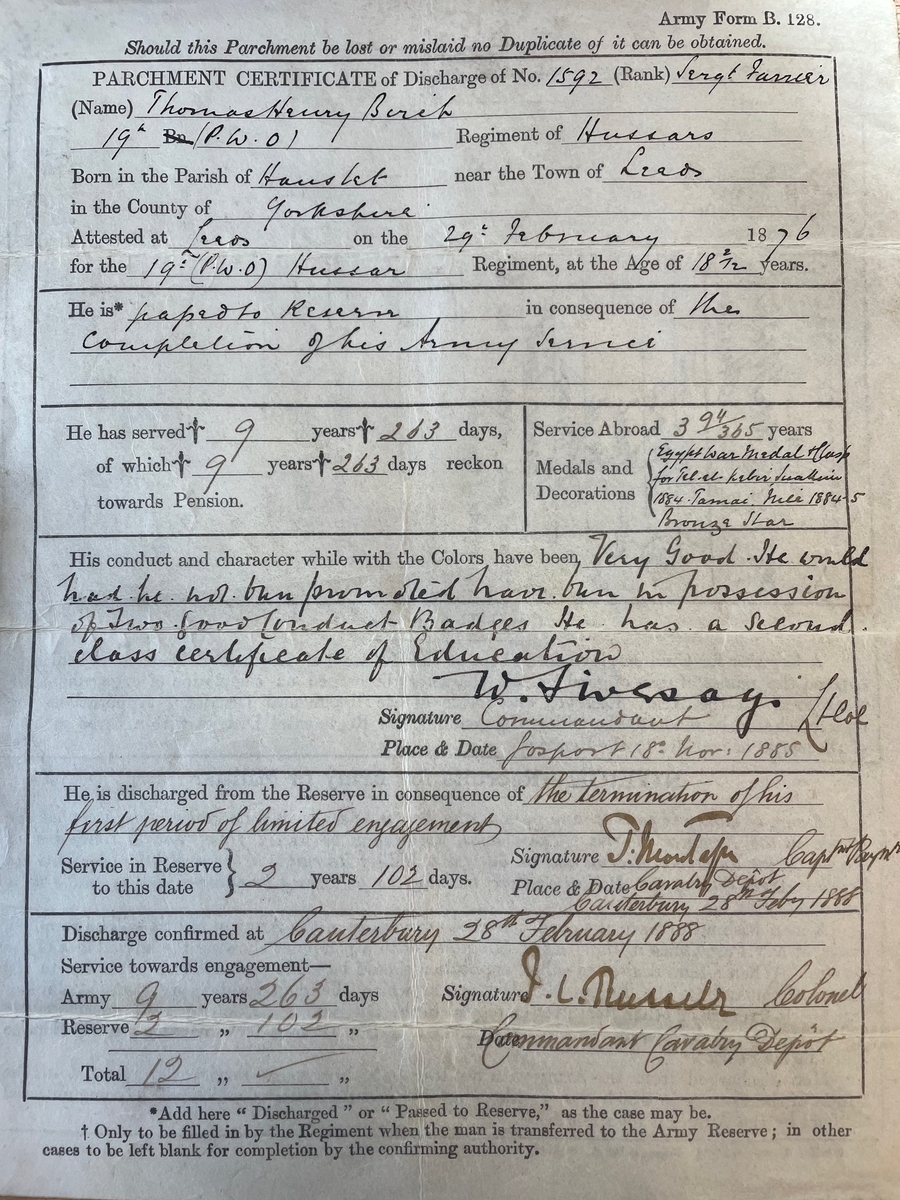 Army Form B. 128.
Should this Parchment be lost or mislaid no Duplicate of it can be obtained.
PARCHMENT CERTIFICATE of Discharge of No. 1592 (Rank) Sergt Farrier
(Name) Thomas Henry Birch
19th Bn (P.W.O) Regiment of Hussars
Born in the Parish of Hunslet near the Town of Leeds
in the County of Yorkshire
Attested at Leeds on the 29th February 1876
for the 19th (P.W.O) Hussar Regiment, at the Age of 18 2/12 years.
He is* passed to Reserve in consequence of the
Completion of his Army Service
He has served† 9 years† 263 days,
of which† 9 years† 263 days reckon
towards Pension.
Service Abroad 3 94/365 years
Medals and Decorations
Egypt War Medal & Clasp
for Tel-el-Kebir Suakin
1884. Tamai. Nile 1884-5
Bronze Star
His conduct and character while with the Colors have been Very Good. He would
had he not been promoted have been in possession
of Two Good Conduct Badges He has a second
class certificate of Education
W.
Signature Commandant Lt Col
Place & Date Gosport 18th Nov: 1885
He is discharged from the Reserve in consequence of the termination of his
first period of limited engagement
Service in Reserve to this date } 2 years 102 days.
Signature Captn
Place & Date Cavalry Depôt
Canterbury 28th Feby 1888
Discharge confirmed at Canterbury 28th February 1888
Service towards engagement—
Army 9 years 263 days
Signature L. Russell Colonel
Reserve 2 „ 102 „
Date Commandant Cavalry Depôt
Total 12 „ „
*Add here “ Discharged ” or “ Passed to Reserve,” as the case may be.
† Only to be filled in by the Regiment when the man is transferred to the Army Reserve ; in other
cases to be left blank for completion by the confirming authority.